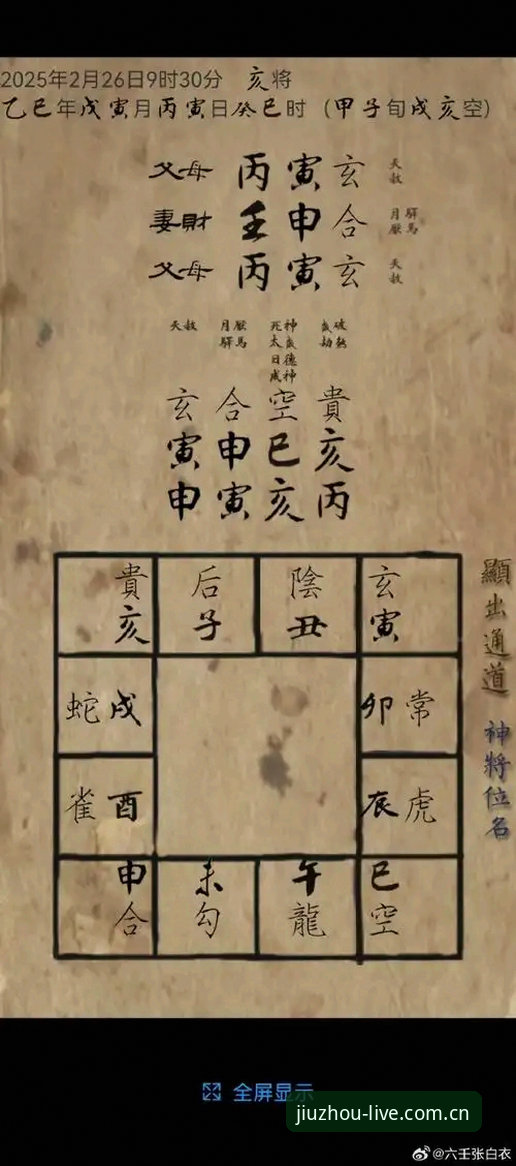 2025年2月26日9时30分 亥将
乙巳年戊寅月丙寅日癸巳时（甲子旬戌亥空）
父母 丙寅玄 天赦
妻財 壬申合 月厭 驛馬
父母 丙寅玄 天赦
天赦 月厭 驛馬 死神 太歲 日德 歲破 劫煞
玄合空貴
寅申巳亥
申寅亥丙
貴 后 陰 玄
亥 子 丑 寅
蛇戌 卯常
雀酉 辰虎
申 未 午 巳
合 勾 龍 空
顯出通道 神將位名
全屏显示
jiuzhou-live.com.cn
@六壬张白衣